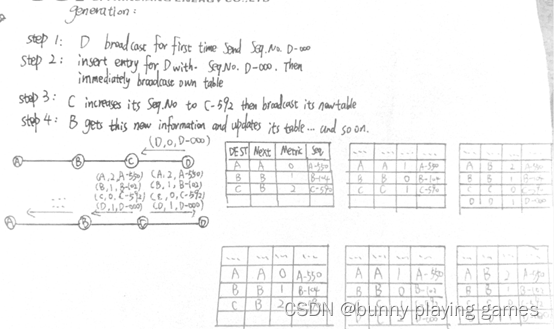 generation:
step 1: D broadcast for first time Send Seq.No. D-000
step 2: insert entry for D with Seq.No. D-000. Then
immediately broadcast own table
step 3: C increases its Seq.No to C-592 then broadcast its new table
step 4: B gets this new information and updates its table... and so on.
(D, 0, D-000)
A B C D
(A, 2, A-550) (A, 2, A-550)
(B, 1, B-102) (B, 1, B-102)
(C, 0, C-592) (C, 0, C-592)
(D, 1, D-000) (D, 1, D-000)
...
A B C D
DEST Next Metric Seq
A A 0 A-550
B B 1 B-104
C B 2 C-590
... ... ... ...
A A 1 A-550
B B 0 B-104
C C 1 C-590
... ... ... ...
A B 2 A-550
B B 1
C C 0
D D 1
... ... ... ...
A A 0 A-550
B B 1 B-104
C B 2
... ... ... ...
A A 1 A-550
B B 0 B-102
C C 1
... ... ... ...
A B 2
B B 1
C C 0
CSDN @bunny playing games